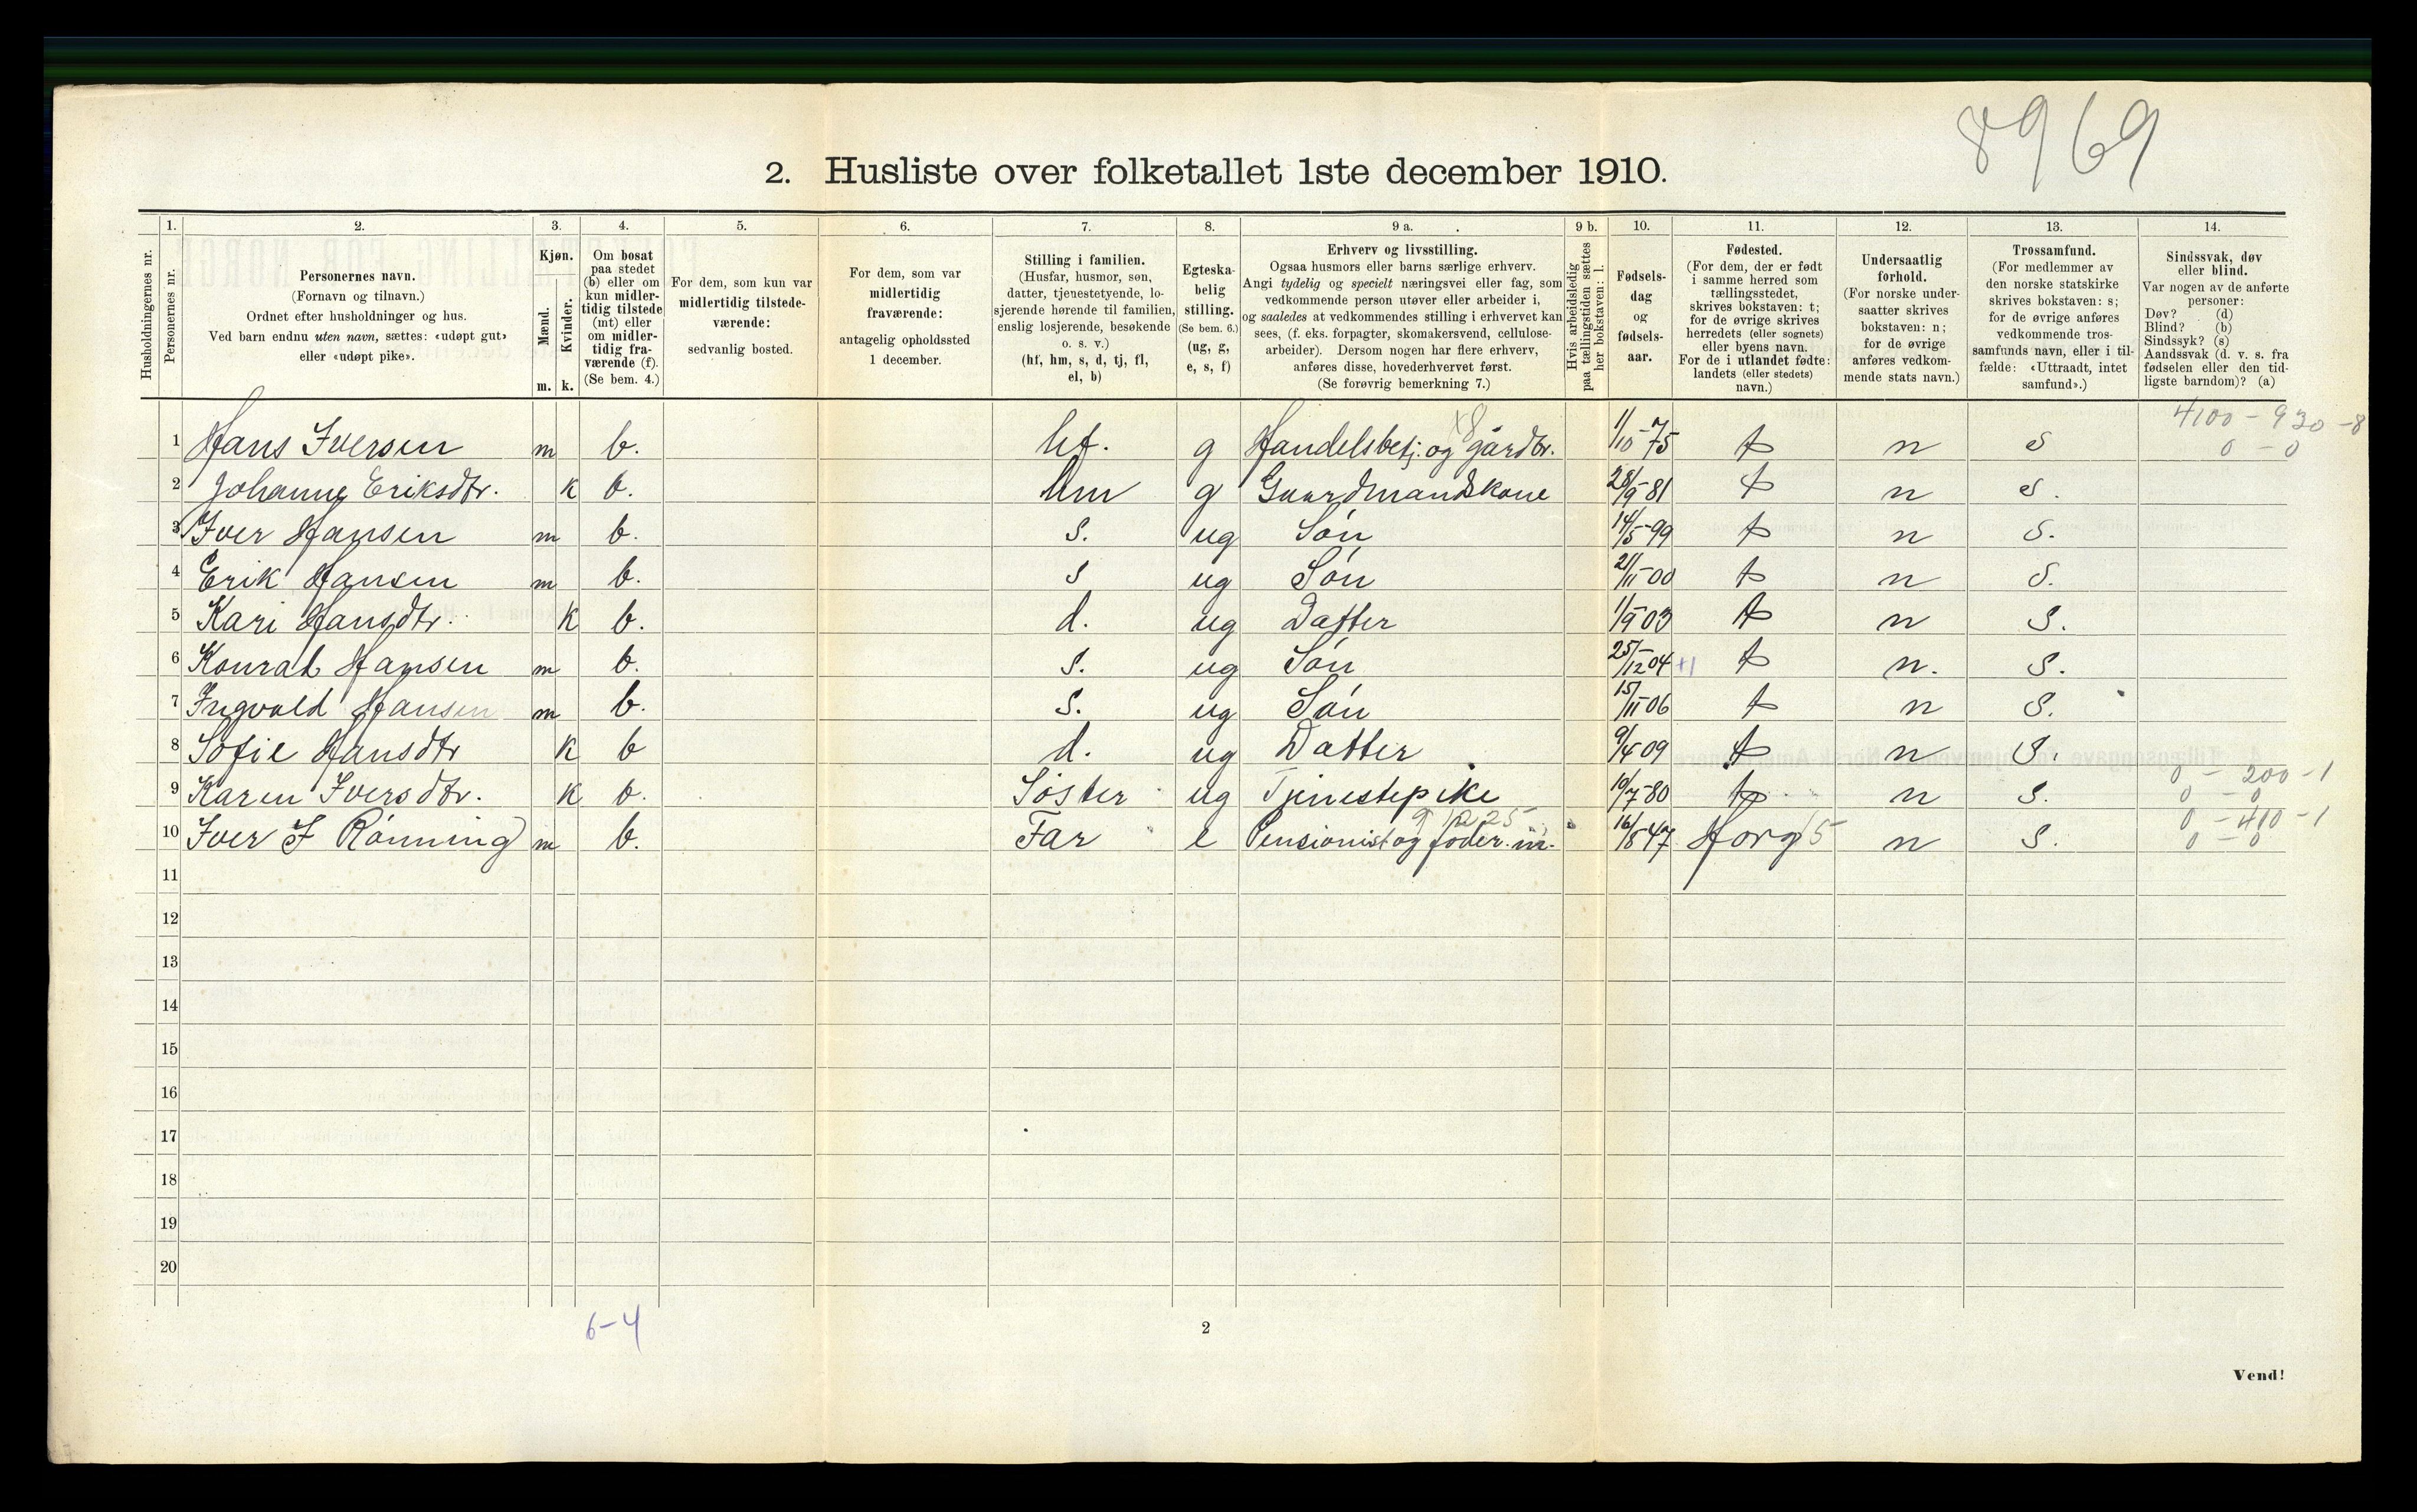 8969
2. Husliste over folketallet 1ste december 1910.
1. 2. 3. 4. 5. 6. 7. 8. 9 a. 9 b. 10. 11. 12. 13. 14.
Husholdningernes nr.
Personernes nr.
Personernes navn.
(Fornavn og tilnavn.)
Ordnet efter husholdninger og hus.
Ved barn endnu uten navn, sættes: «udøpt gut»
eller «udøpt pike».
Kjøn.
Mænd.
Kvinder.
m. k.
Om bosat
paa stedet
(b) eller om
kun midler-
tidig tilstede
(mt) eller
om midler-
tidig fra-
værende (f).
(Se bem. 4.)
For dem, som kun var
midlertidig tilstede-
værende:
sedvanlig bosted.
For dem, som var
midlertidig
fraværende:
antagelig opholdssted
1 december.
Stilling i familien.
(Husfar, husmor, søn,
datter, tjenestetyende, lo-
sjerende hørende til familien,
enslig losjerende, besøkende
o. s. v.)
(hf, hm, s, d, tj, fl,
el, b)
Egteska-
belig
stilling.
(Se bem. 6.)
(ug, g,
e, s, f)
Erhverv og livsstilling.
Ogsaa husmors eller barns særlige erhverv.
Angi tydelig og specielt næringsvei eller fag, som
vedkommende person utøver eller arbeider i,
og saaledes at vedkommendes stilling i erhvervet kan
sees, (f. eks. forpagter, skomakersvend, cellulose-
arbeider). Dersom nogen har flere erhverv,
anføres disse, hovederhvervet først.
(Se forøvrig bemerkning 7.)
Hvis arbeidsledig
paa tællingstiden sættes
her bokstaven: l.
Fødsels-
dag
og
fødsels-
aar.
Fødested.
(For dem, der er født
i samme herred som
tællingsstedet,
skrives bokstaven: t;
for de øvrige skrives
herredets (eller sognets)
eller byens navn.
For de i utlandet fødte:
landets (eller stedets)
navn.)
Undersaatlig
forhold.
(For norske under-
saatter skrives
bokstaven: n;
for de øvrige
anføres vedkom-
mende stats navn.)
Trossamfund.
(For medlemmer av
den norske statskirke
skrives bokstaven: s;
for de øvrige anføres
vedkommende tros-
samfunds navn, eller i til-
fælde: «Uttraadt, intet
samfund».)
Sindssvak, døv
eller blind.
Var nogen av de anførte
personer:
Døv? (d)
Blind? (b)
Sindssyk? (s)
Aandssvak (d. v. s. fra
fødselen eller den tid-
ligste barndom)? (a)
x8 4100 - 930 - 8
1 Hans Iversen m b. hf. g Handelsbetj. og gårdbr. 1/10-75 t n s 0 - 0
2 Johanne Eriksdtr. k b. hm g Gaardmandskone 28/9-81 t n s.
3 Iver Hansen m b. s. ug Søn 14/5-99 t n s.
4 Erik Hansen m b. s ug Søn 21/11-00 t n s.
5 Kari Hansdtr. k b. d. ug Datter 1/9-03 t n s.
6 Konrad Hansen m b. s. ug Søn 25/12 04 +1 t n. s.
7 Ingvald Hansen m b. s. ug Søn 15/11-06 t n s.
8 Sofie Hansdtr k b d. ug Datter 9/4 09 t n s.
0 - 200 - 1
9 Karen Iversdtr. k b. Søster ug Tjenestepike 10/7-80 t n s. 0 - 0
0 - 410 - 1
10 Iver I Rønning m b. Far e Pensionist og foder.m. 16/8 47 Horg 5 n s. 0 - 0
11
12
13
14
15
16
17
18
19
20
6-4
2
Vend!